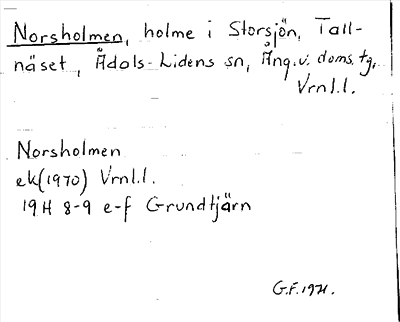 Norsholmen, holme i Storsjön, Tall-
näset, Ådals-Lidens sn, Ång.v. doms. tg,
Vrnl.l.
Norsholmen
ek(1970) Vrnl.l.
19H 8-9 e-f Grundtjärn
G.F. 1971.